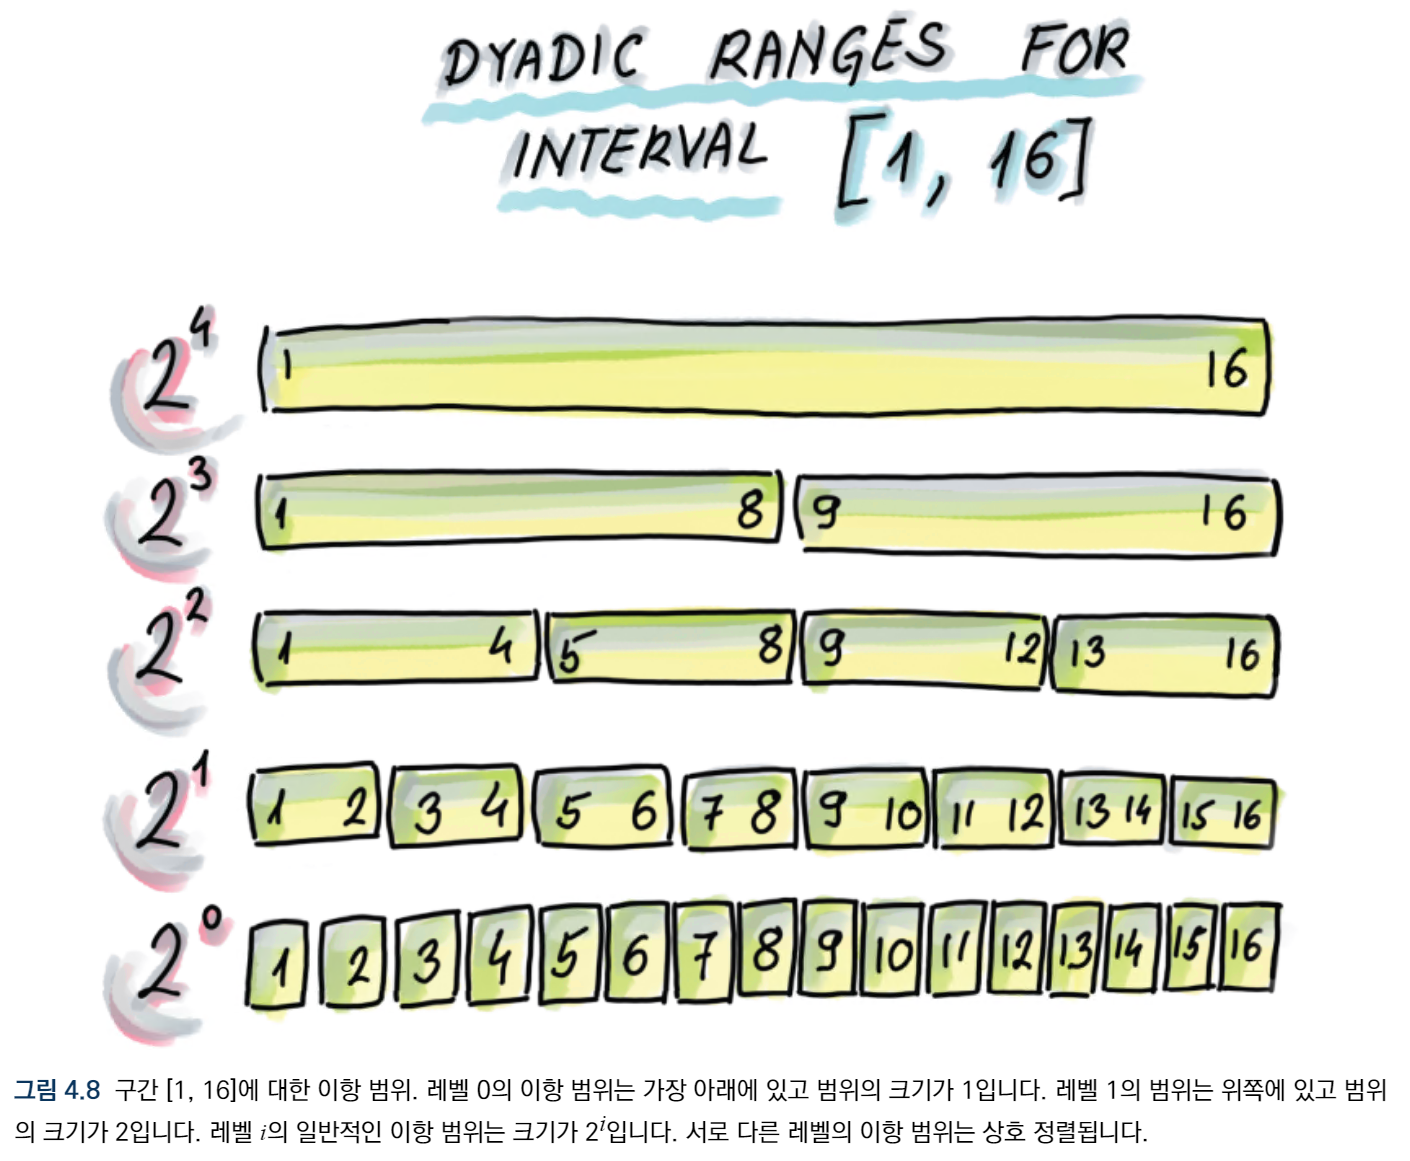 DYADIC RANGES FOR
INTERVAL [1, 16]
2⁴ 1 16
2³ 1 8 9 16
2² 1 4 5 8 9 12 13 16
2¹ 1 2 3 4 5 6 7 8 9 10 11 12 13 14 15 16
2⁰ 1 2 3 4 5 6 7 8 9 10 11 12 13 14 15 16
그림 4.8 구간 [1, 16]에 대한 이항 범위. 레벨 0의 이항 범위는 가장 아래에 있고 범위의 크기가 1입니다. 레벨 1의 범위는 위쪽에 있고 범위
의 크기가 2입니다. 레벨 i의 일반적인 이항 범위는 크기가 2ⁱ입니다. 서로 다른 레벨의 이항 범위는 상호 정렬됩니다.